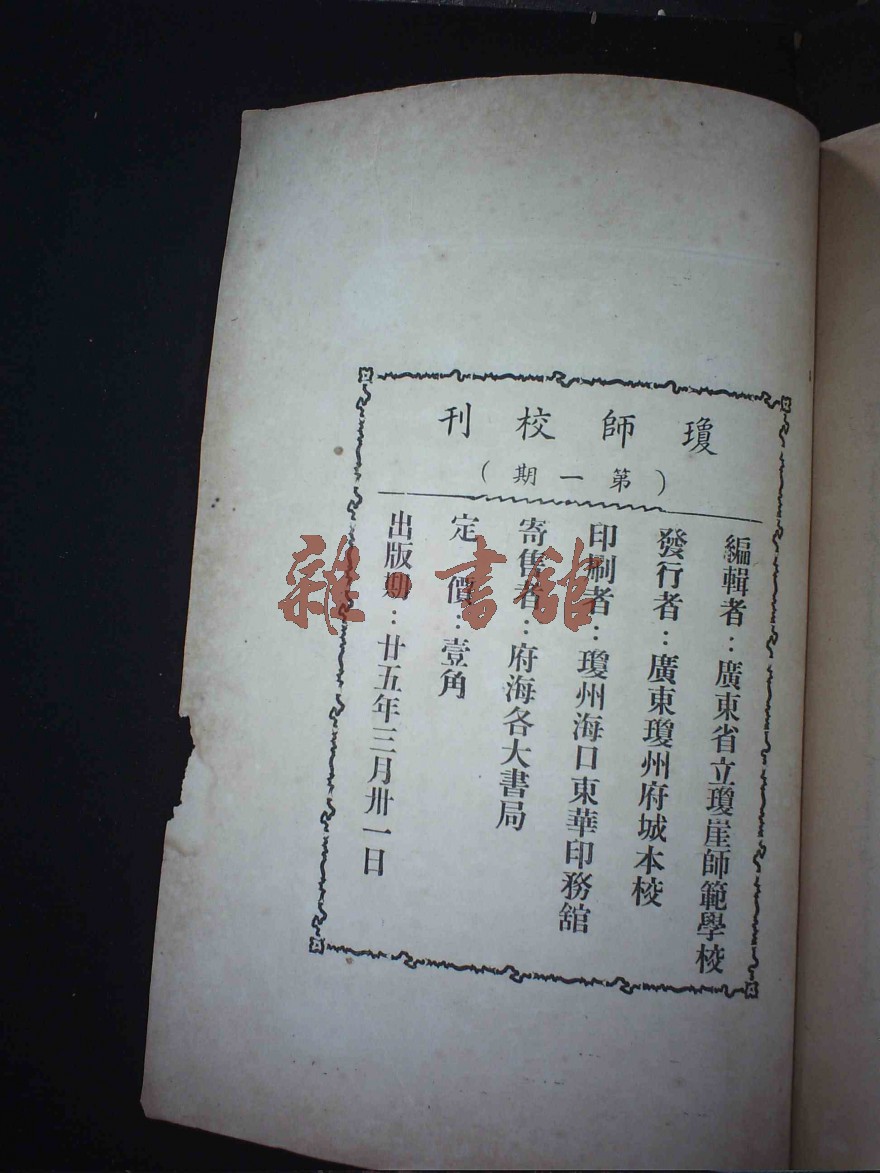 瓊師校刊
（第一期）
編輯者：廣東省立瓊崖師範學校
發行者：廣東瓊州府城本校
印刷者：瓊州海口東華印務舘
寄售者：府海各大書局
定價：壹角
出版期：廿五年三月卅一日
雜書舘